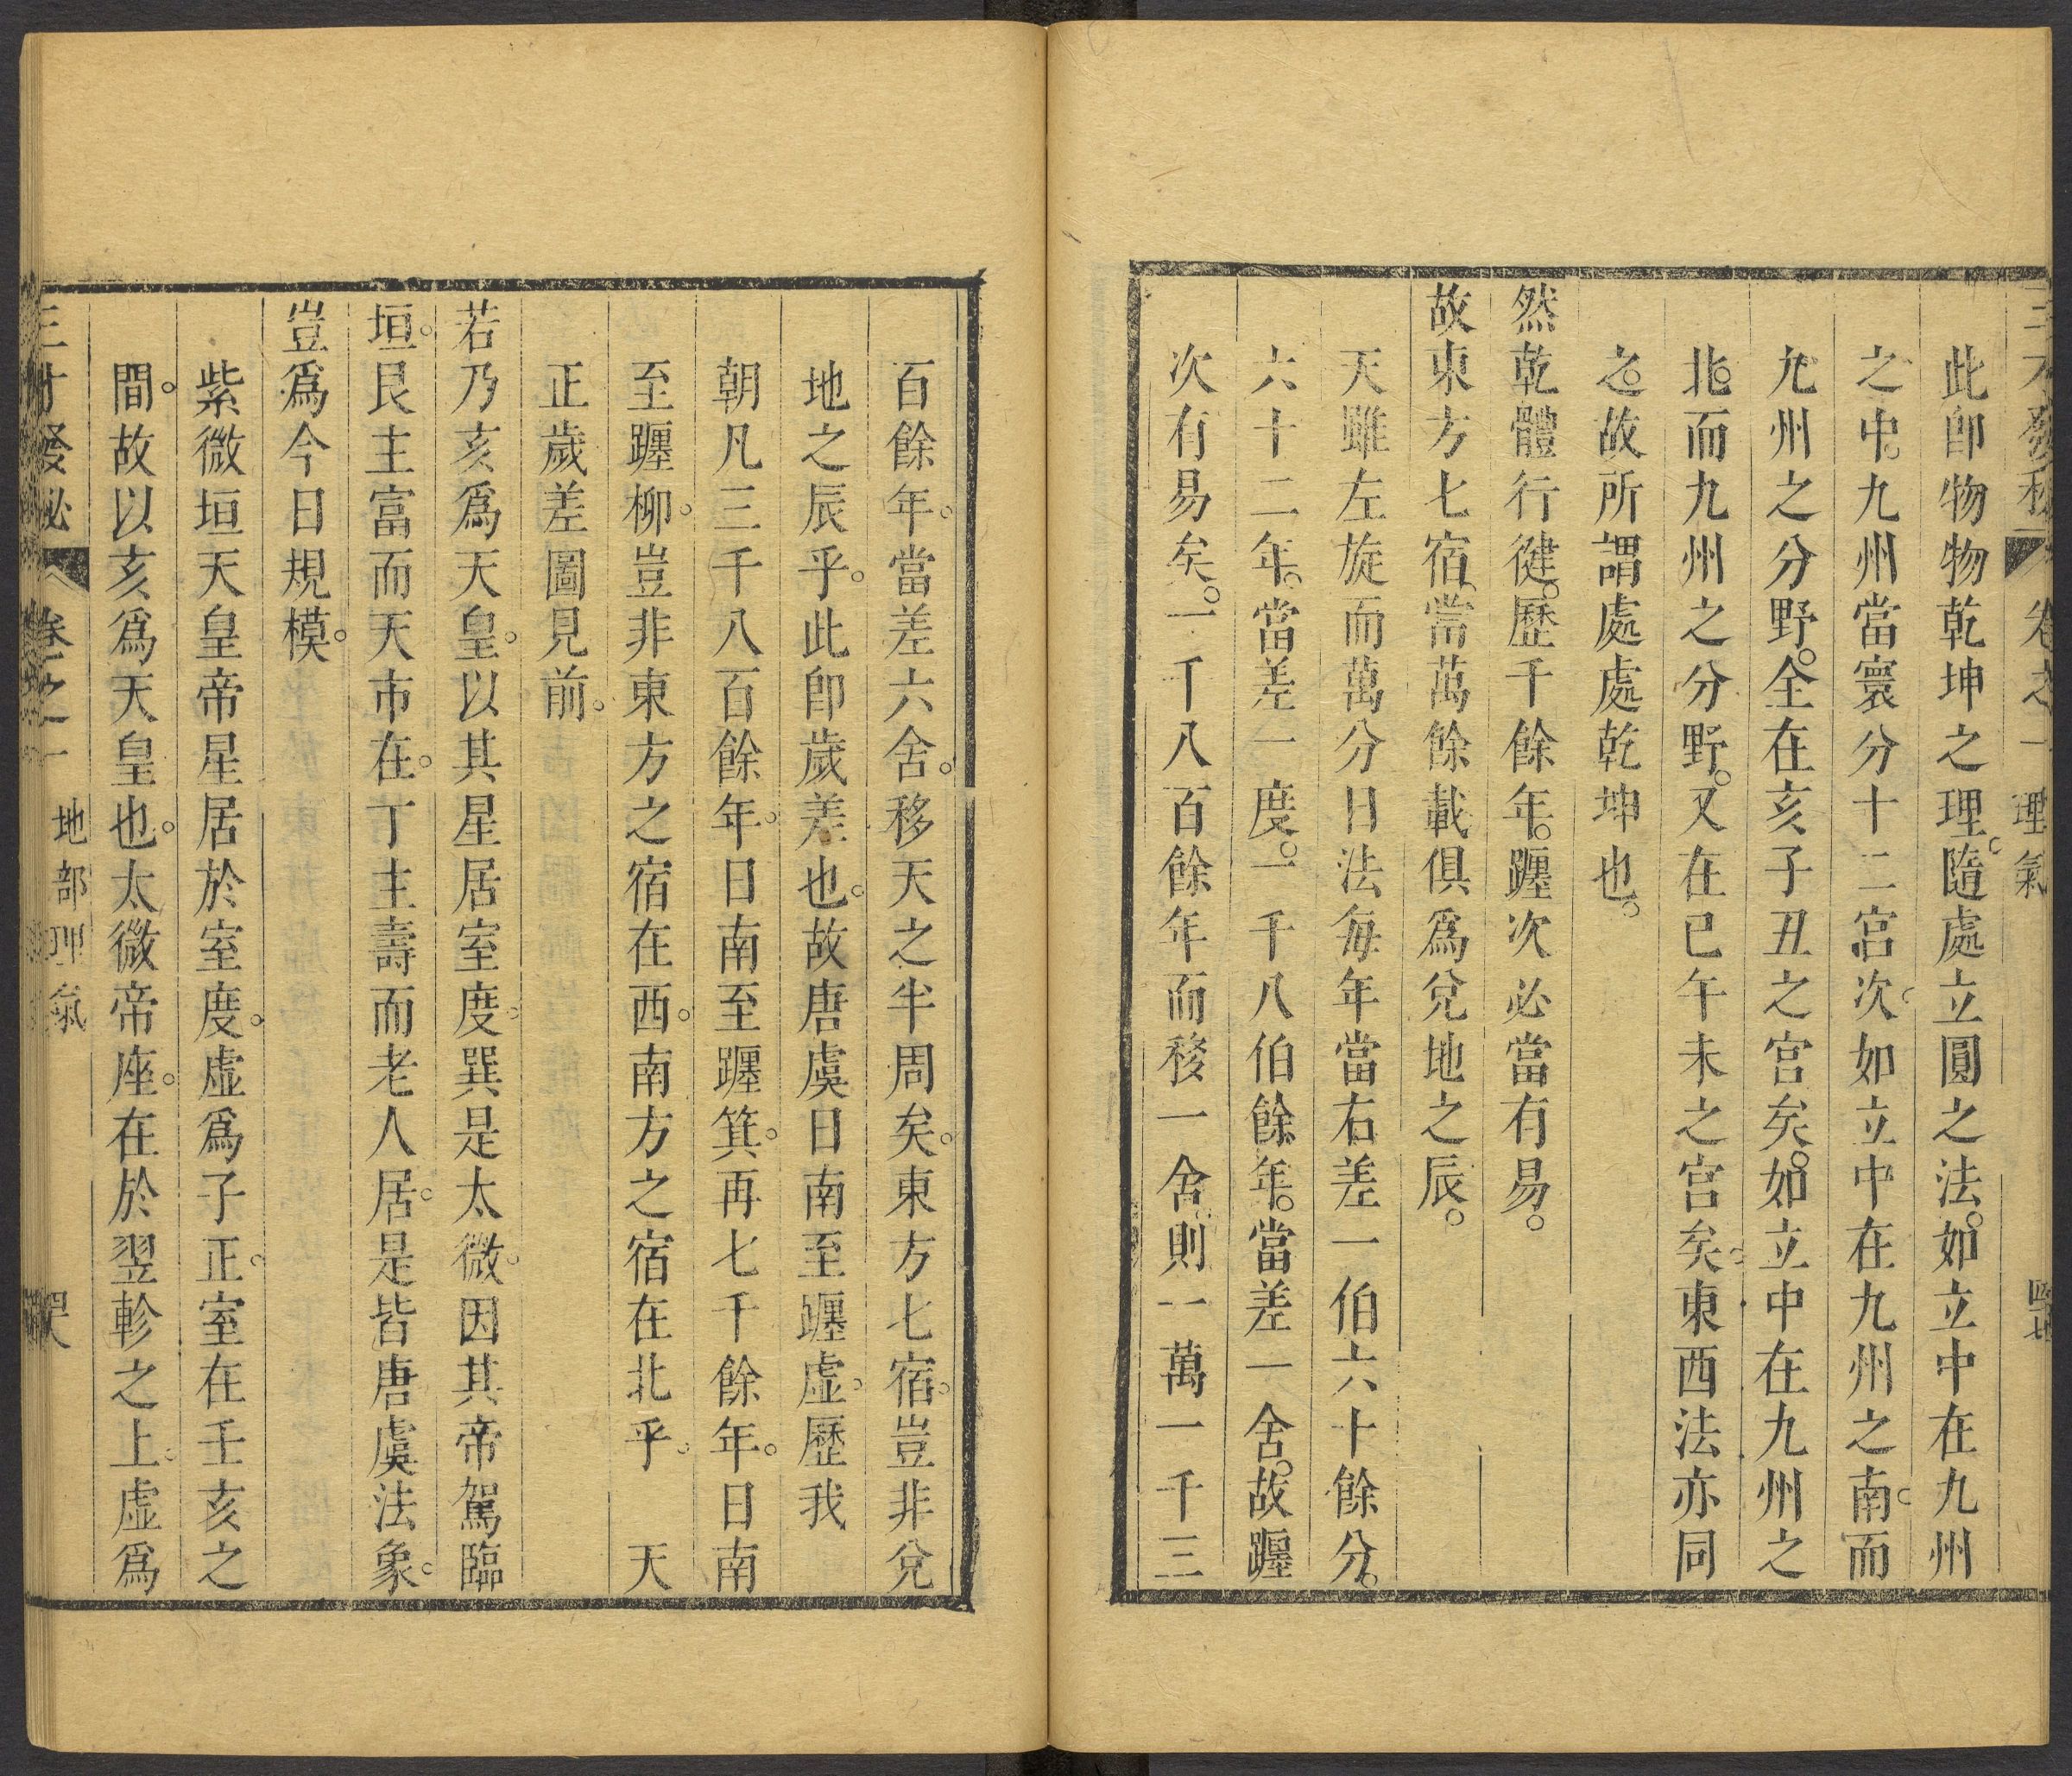 三才發秘 卷之一 理氣
此卽物物乾坤之理。隨處立圓之法。如立中在九州
之中。九州當寰分十二宮次。如立中在九州之南。而
九州之分野。全在亥子丑之宮矣。如立中在九州之
北。而九州之分野。又在巳午未之宮矣。東西法亦同
之。故所謂處處乾坤也。
然乾體行健。歷千餘年。躔次必當有易。
故東方七宿。當萬餘載俱爲兌地之辰。
天雖左旋而萬分日法每年當右差一伯六十餘分。
六十二年。當差一度。一千八伯餘年。當差一舍。故躔
次有易矣。一千八百餘年而移一舍。則一萬一千三
百餘年。當差六舍。移天之半周矣。東方七宿。豈非兌
地之辰乎。此卽歲差也。故唐虞日南至躔虛。歷我
朝凡三千八百餘年。日南至躔箕。再七千餘年。日南
至躔柳。豈非東方之宿在西。南方之宿在北乎。 天
正歲差圖見前。
若乃亥爲天皇。以其星居室度。巽是太微。因其帝駕臨
垣。艮主富而天市在。丁主壽而老人居。是皆唐虞法象。
豈爲今日規模。
紫微垣天皇帝星居於室度。虛爲子正。室在壬亥之
間。故以亥爲天皇也。太微帝座。在於翌軫之上。虛爲
三才發秘 卷之一 地部理氣